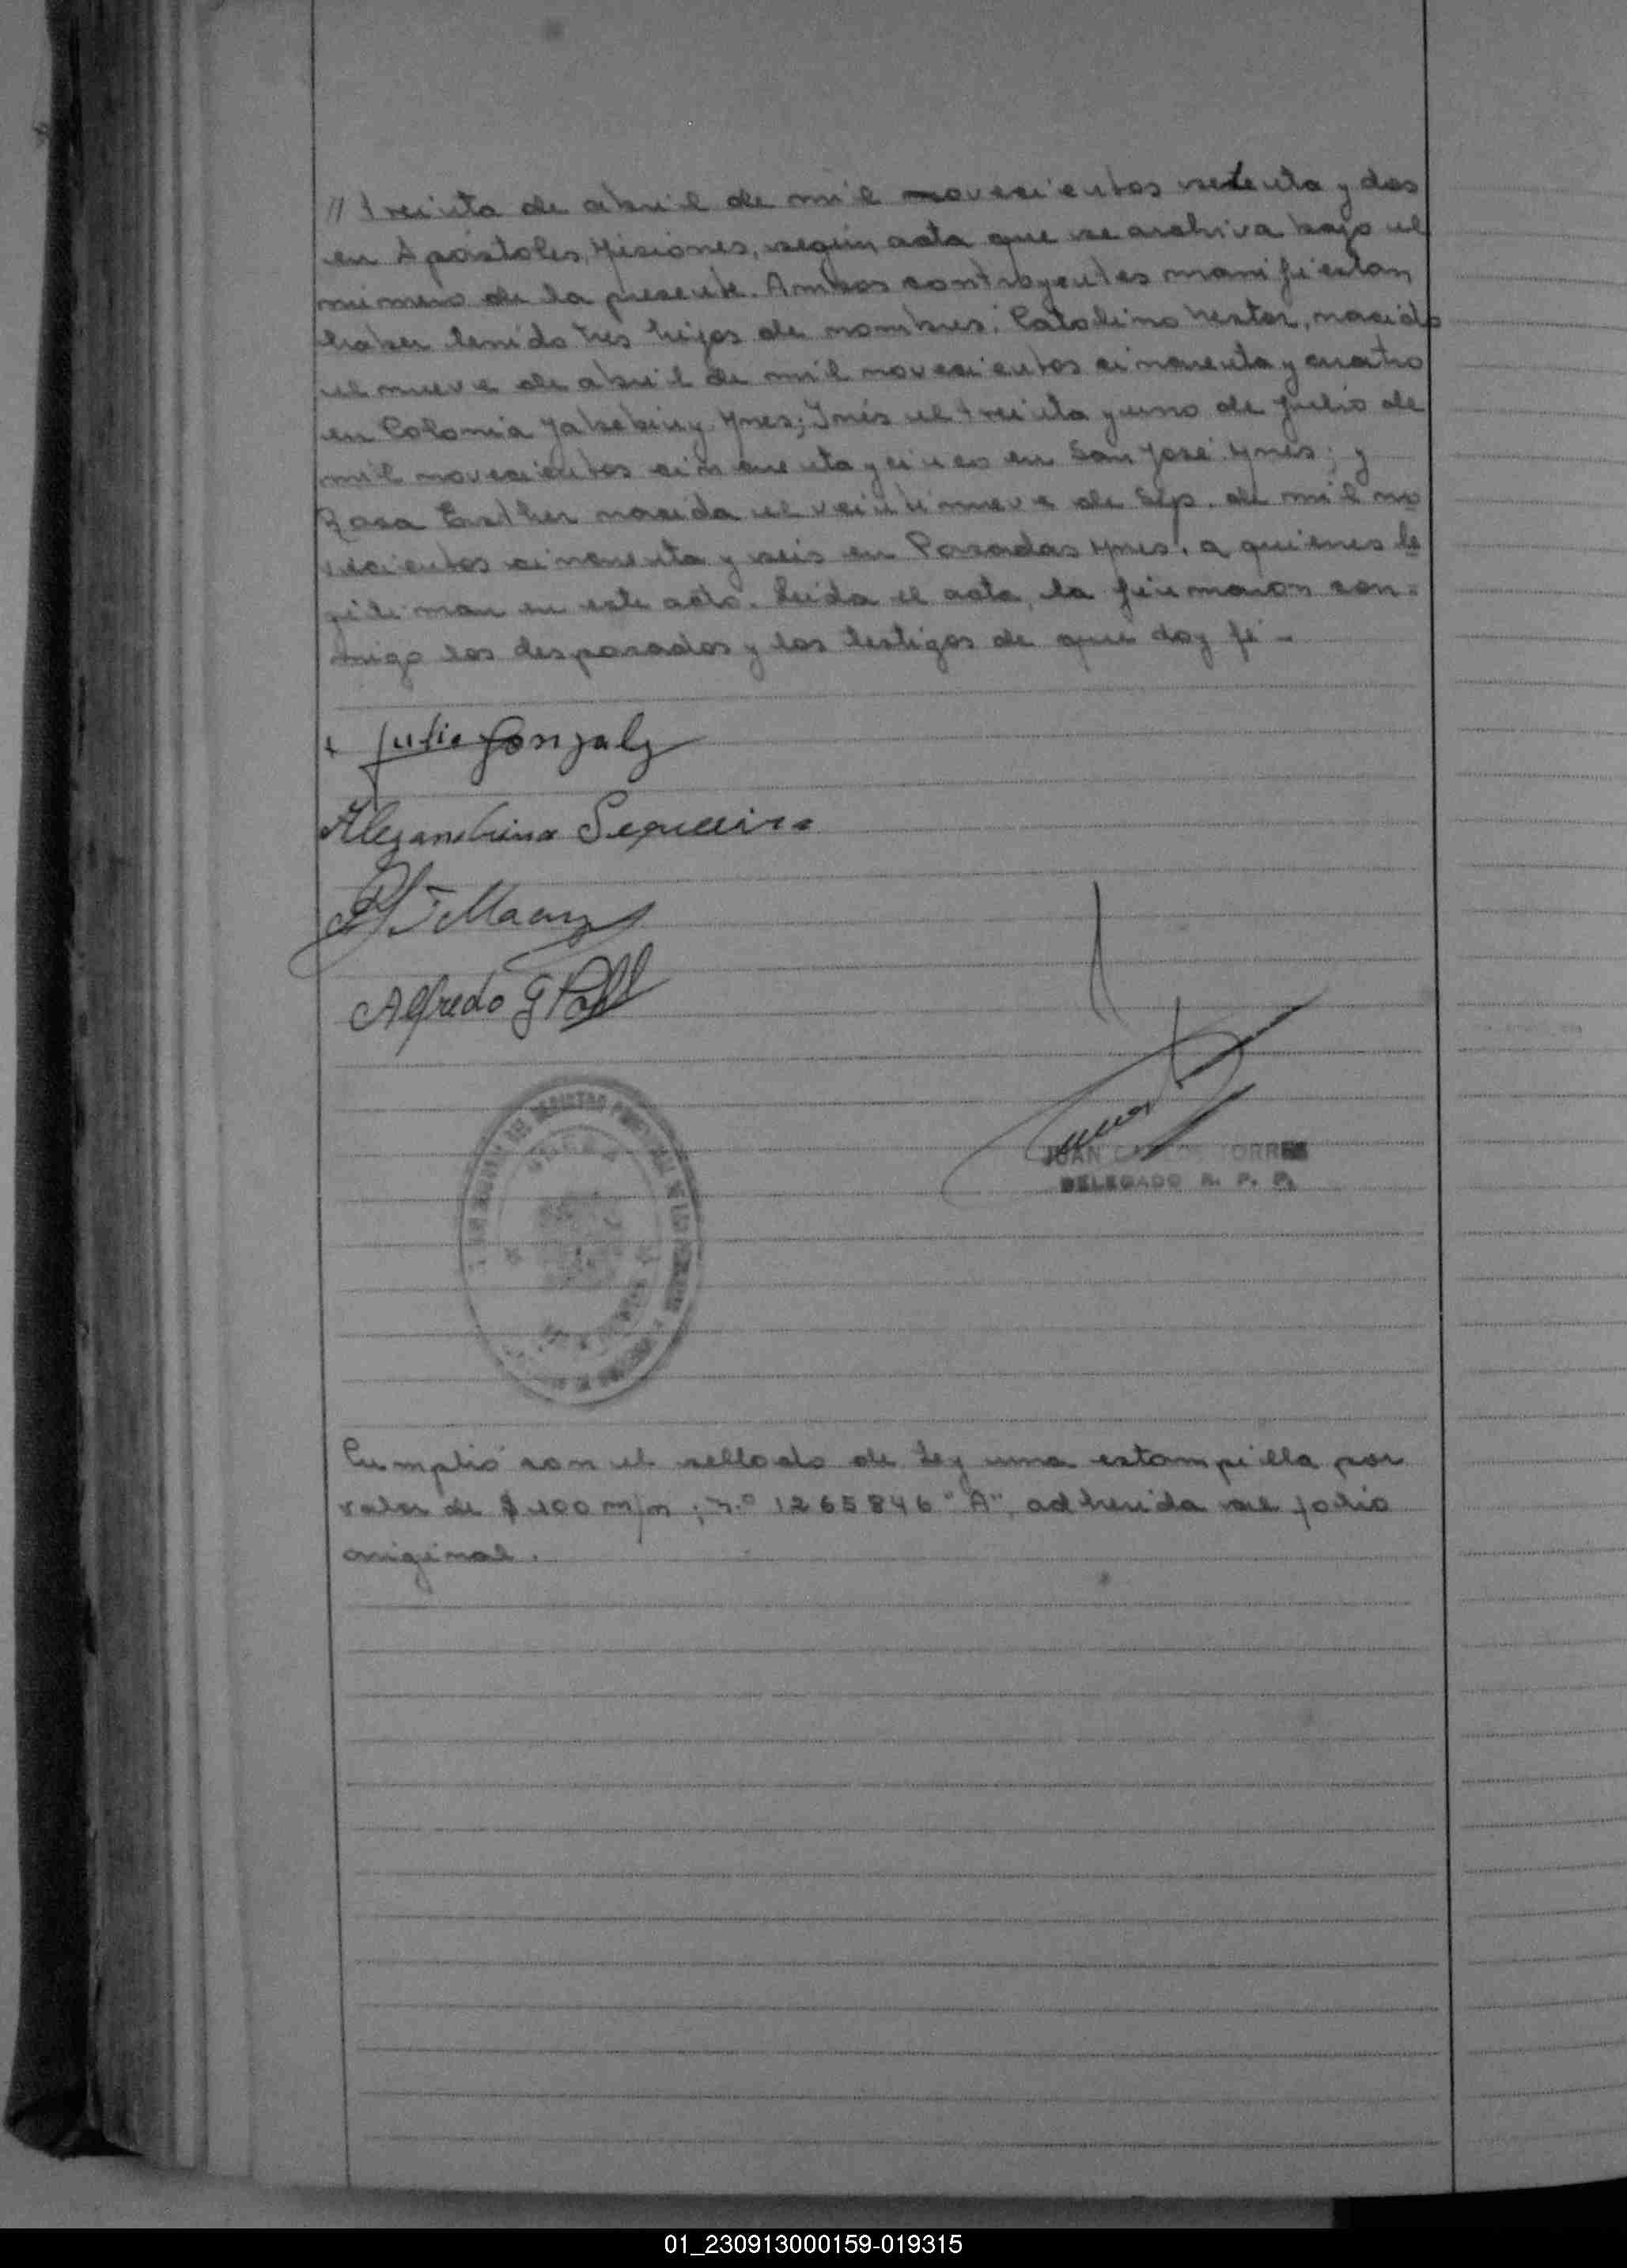 // treinta de abril de mil novecientos setenta y dos
en Apóstoles, Misiones, según acta que se archiva bajo el
número de la presente. Ambos contrayentes manifiestan
haber tenido tres hijos de nombres: Catalino Nestor, nacido
el nueve de abril de mil novecientos cincuenta y cuatro
en Colonia Yabebiry Mnes; Inés el treinta y uno de Julio de
mil novecientos cincuenta y cinco en San José Mnes; y
Rosa Esther nacida el veintinueve de Sep. de mil no
vecientos cincuenta y seis en Posadas Mnes. a quienes le
gitiman en este acto. Leida el acta, la firmaron con-
migo los desposados y los testigos de que doy fé -
Julio Gonzalz
Alejandrina Sequeira
Alfredo G
JUAN CARLOS TORRES
DELEGADO R. P. P.
Cumplió con el sellado de Ley una estampilla por
valor de $ 100 m/n ; n.° 1265846 "A", adherida al folio
original.
01_230913000159-019315